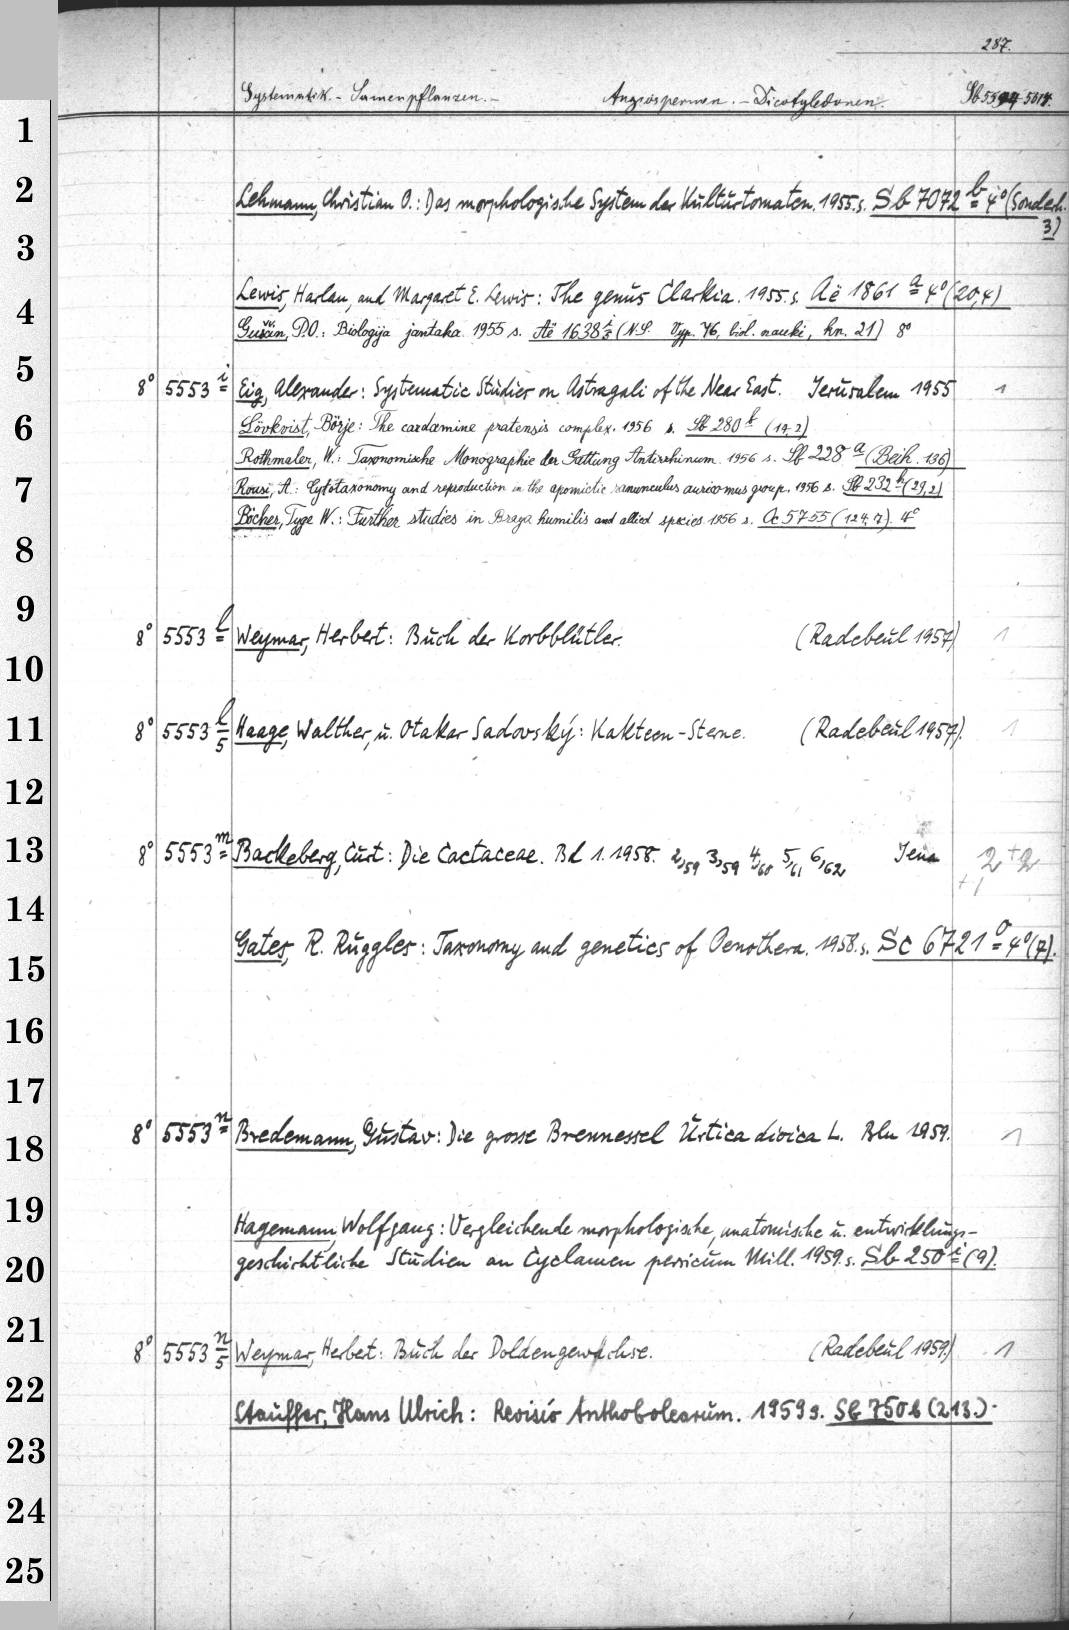 287.
Systematik. - Samenpflanzen. - Angiospermen. - Dicotyledonen. Sb
1
2 Lehmann, Christian O.: Das morphologische System der Kulturtomaten. 1955. s. Sb 7072 b 4° (Sonderh.
3)
3
4 Lewis, Harlan, and Margaret E. Lewis: The genus Clarkia. 1955. s. Aë 1861 a 4° (20,4)
P.O.: Biologija jantaka. 1955 s. Aë 1638 (N.S. Vyp. 46, biol. nauki, kn. 21) 8°
5
8° 5553 i Eig, Alexander: Systematic Studies on Astragali of the Near East. Jerusalem 1955 1
6 Lövkvist, Börje: The cardamine pratensis complex. 1956 s. Sb 280 (14,2)
Rothmaler, W.: Taxonomische Monographie der Gattung Antirrhinum. 1956 s. Sb 228 a (Beih. 136)
7 Rousi, A.: Cytotaxonomy and reproduction in the apomictic ranunculus auricomus group. 1956 s. Sb 232 (29,2)
Böcher, Tyge W.: Further studies in Braya humilis and allied species 1956 s. Ac 5755 (124,7). 4°
8
9
8° 5553 l Weymar, Herbert: Buch der Korbblütler. (Radebeul 1957) 1
10
11 8° 5553 l/5 Haage, Walther, u. Otakar Sadovský: Kakteen-Sterne. (Radebeul 1957). 1
12
13 8° 5553 m Backeberg, Curt: Die Cactaceae. Bd 1. 1958. 2,59 3,59 4,60 5,61 6,62 Jena 2 +2
+1
14
15 Gates, R. Ruggles: Taxonomy and genetics of Oenothera. 1958. s. Sc 6721 o 4° (7).
16
17
18 8° 5553 n Bredemann, Gustav: Die grosse Brennessel Urtica dioica L. Bln 1959. 1
19 Hagemann, Wolfgang: Vergleichende morphologische, anatomische u. entwicklungs-
20 geschichtliche Studien an Cyclamen persicum Mill. 1959. s. Sb 250 (9).
21
8° 5553 n/5 Weymar, Herbert: Buch der Doldengewächse. (Radebeul 1959.) 1
22
Stauffer, Hans Ulrich: Revisio Anthobolearum. 1959 s. Sb 750 b (213.).
23
24
25